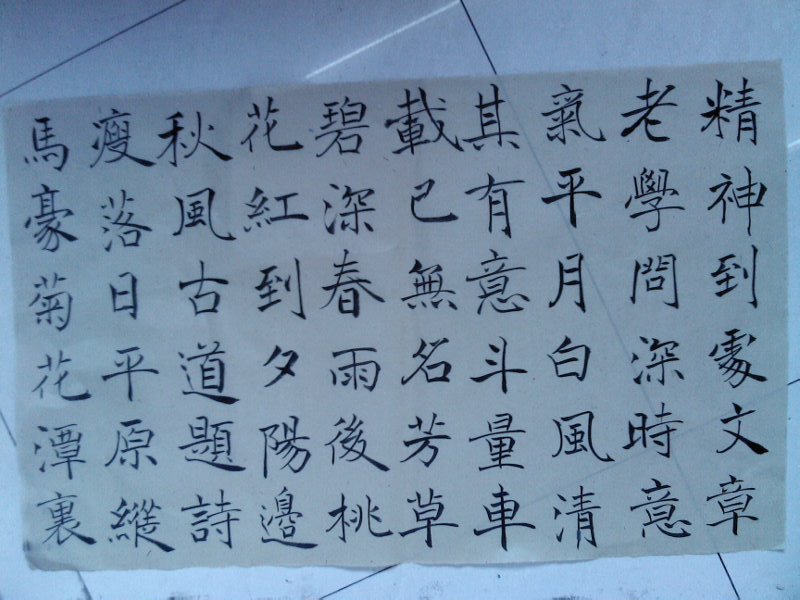 精神到處文章
老學問深時意
氣平月白風清
其有意斗量車
載已無名芳草
碧深春雨後桃
花紅到夕陽邊
秋風古道題詩
瘦落日平原縱
馬豪菊花潭裏